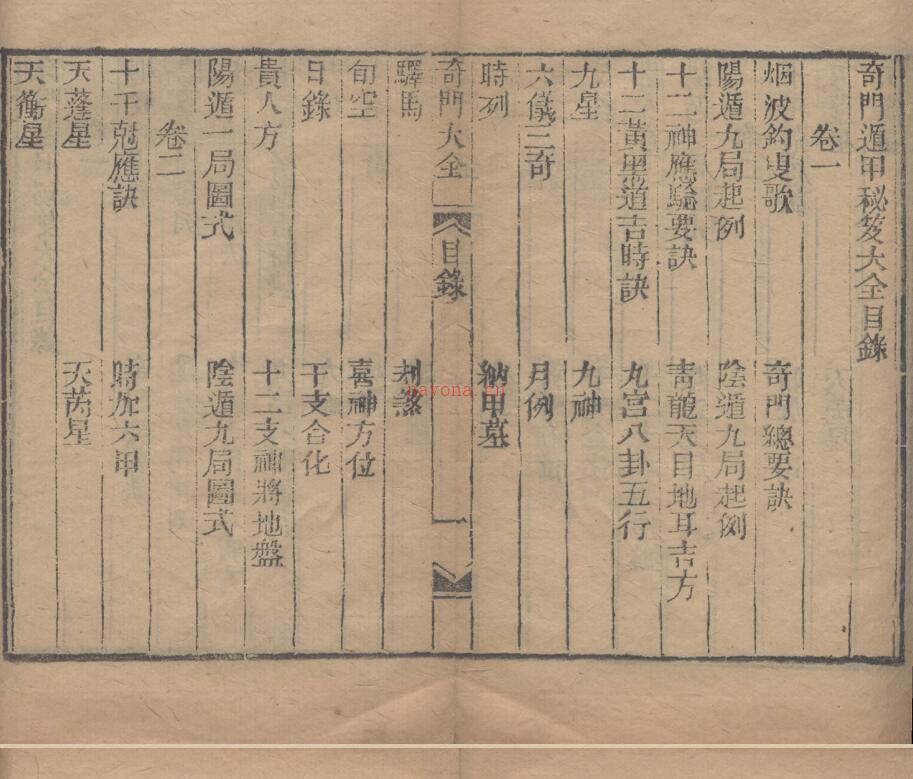 奇門遁甲秘笈大全目錄
卷一
烟波釣叟歌 奇門總要訣
陽遁九局起例 陰遁九局起例
十二神應騐要訣 青龍天目地耳吉方
十二黃黑道吉時訣 九宮八卦五行
九星 九神
六儀三奇 月例
時列 納甲墓
奇門大全 目錄 一
驛馬 刦煞
旬空 喜神方位
日錄 干支合化
貴人方 十二支神將地盤
陽遁一局圖式 陰遁九局圖式
卷二
十干尅應訣 時加六甲
天蓬星 天芮星
天衝星
nayona.cn